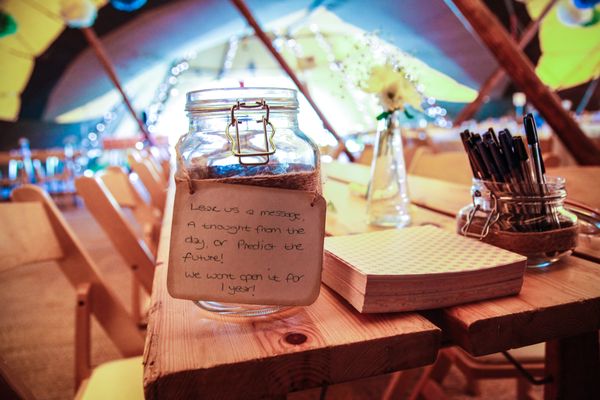 Leave us a message,
A thought from the
day, or Predict the
future!
We wont open it for
1 year!